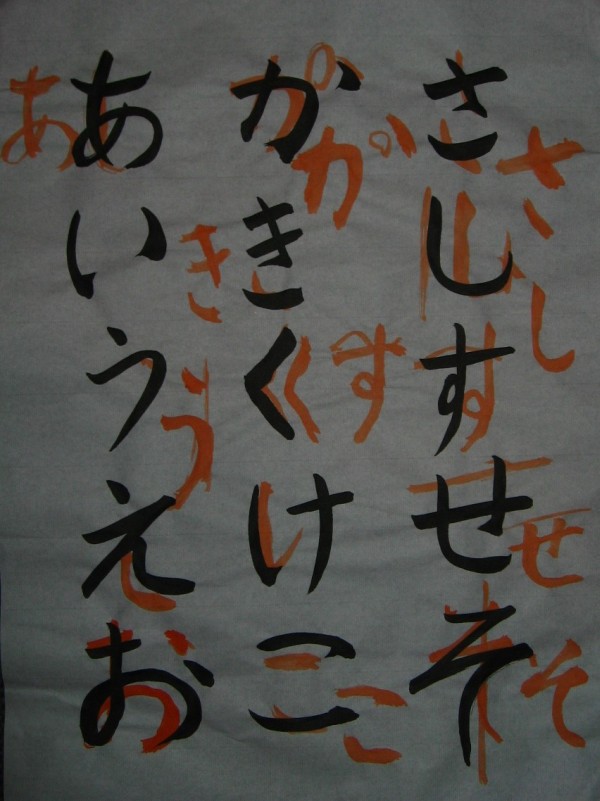 あ
あいうえお
きう
かきくけこ
かすこ
さしすせそ
さしせそ